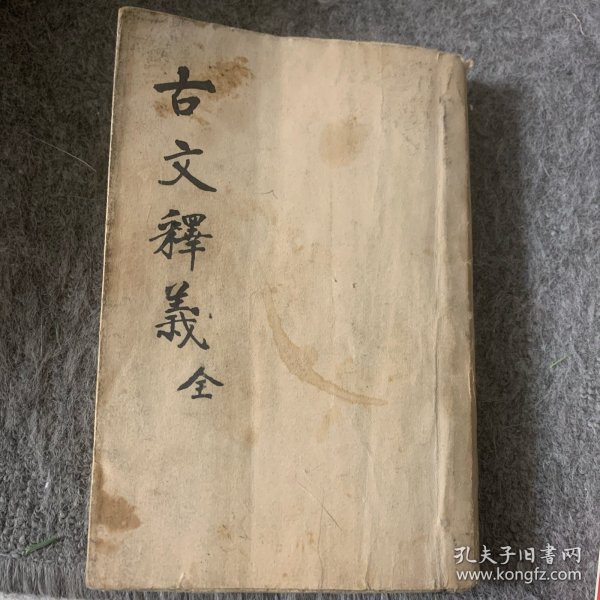 古文釋義全
孔夫子旧書网
www.kongfz.com